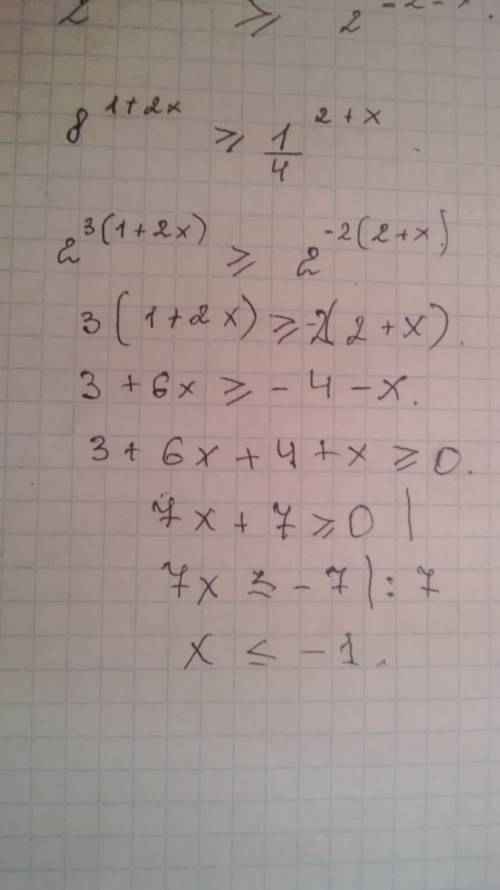 2 ≥ 2^{-2-x}.
8^{1+2x} ≥ \frac{1}{4}^{2+x}.
2^{3(1+2x)} ≥ 2^{-2(2+x)}
3(1+2x) ≥ -2(2+x).
3+6x ≥ -4-x.
3+6x+4+x ≥ 0.
7x+7 ≥ 0 |
7x ≤ -7 |: 7
x ≤ -1.